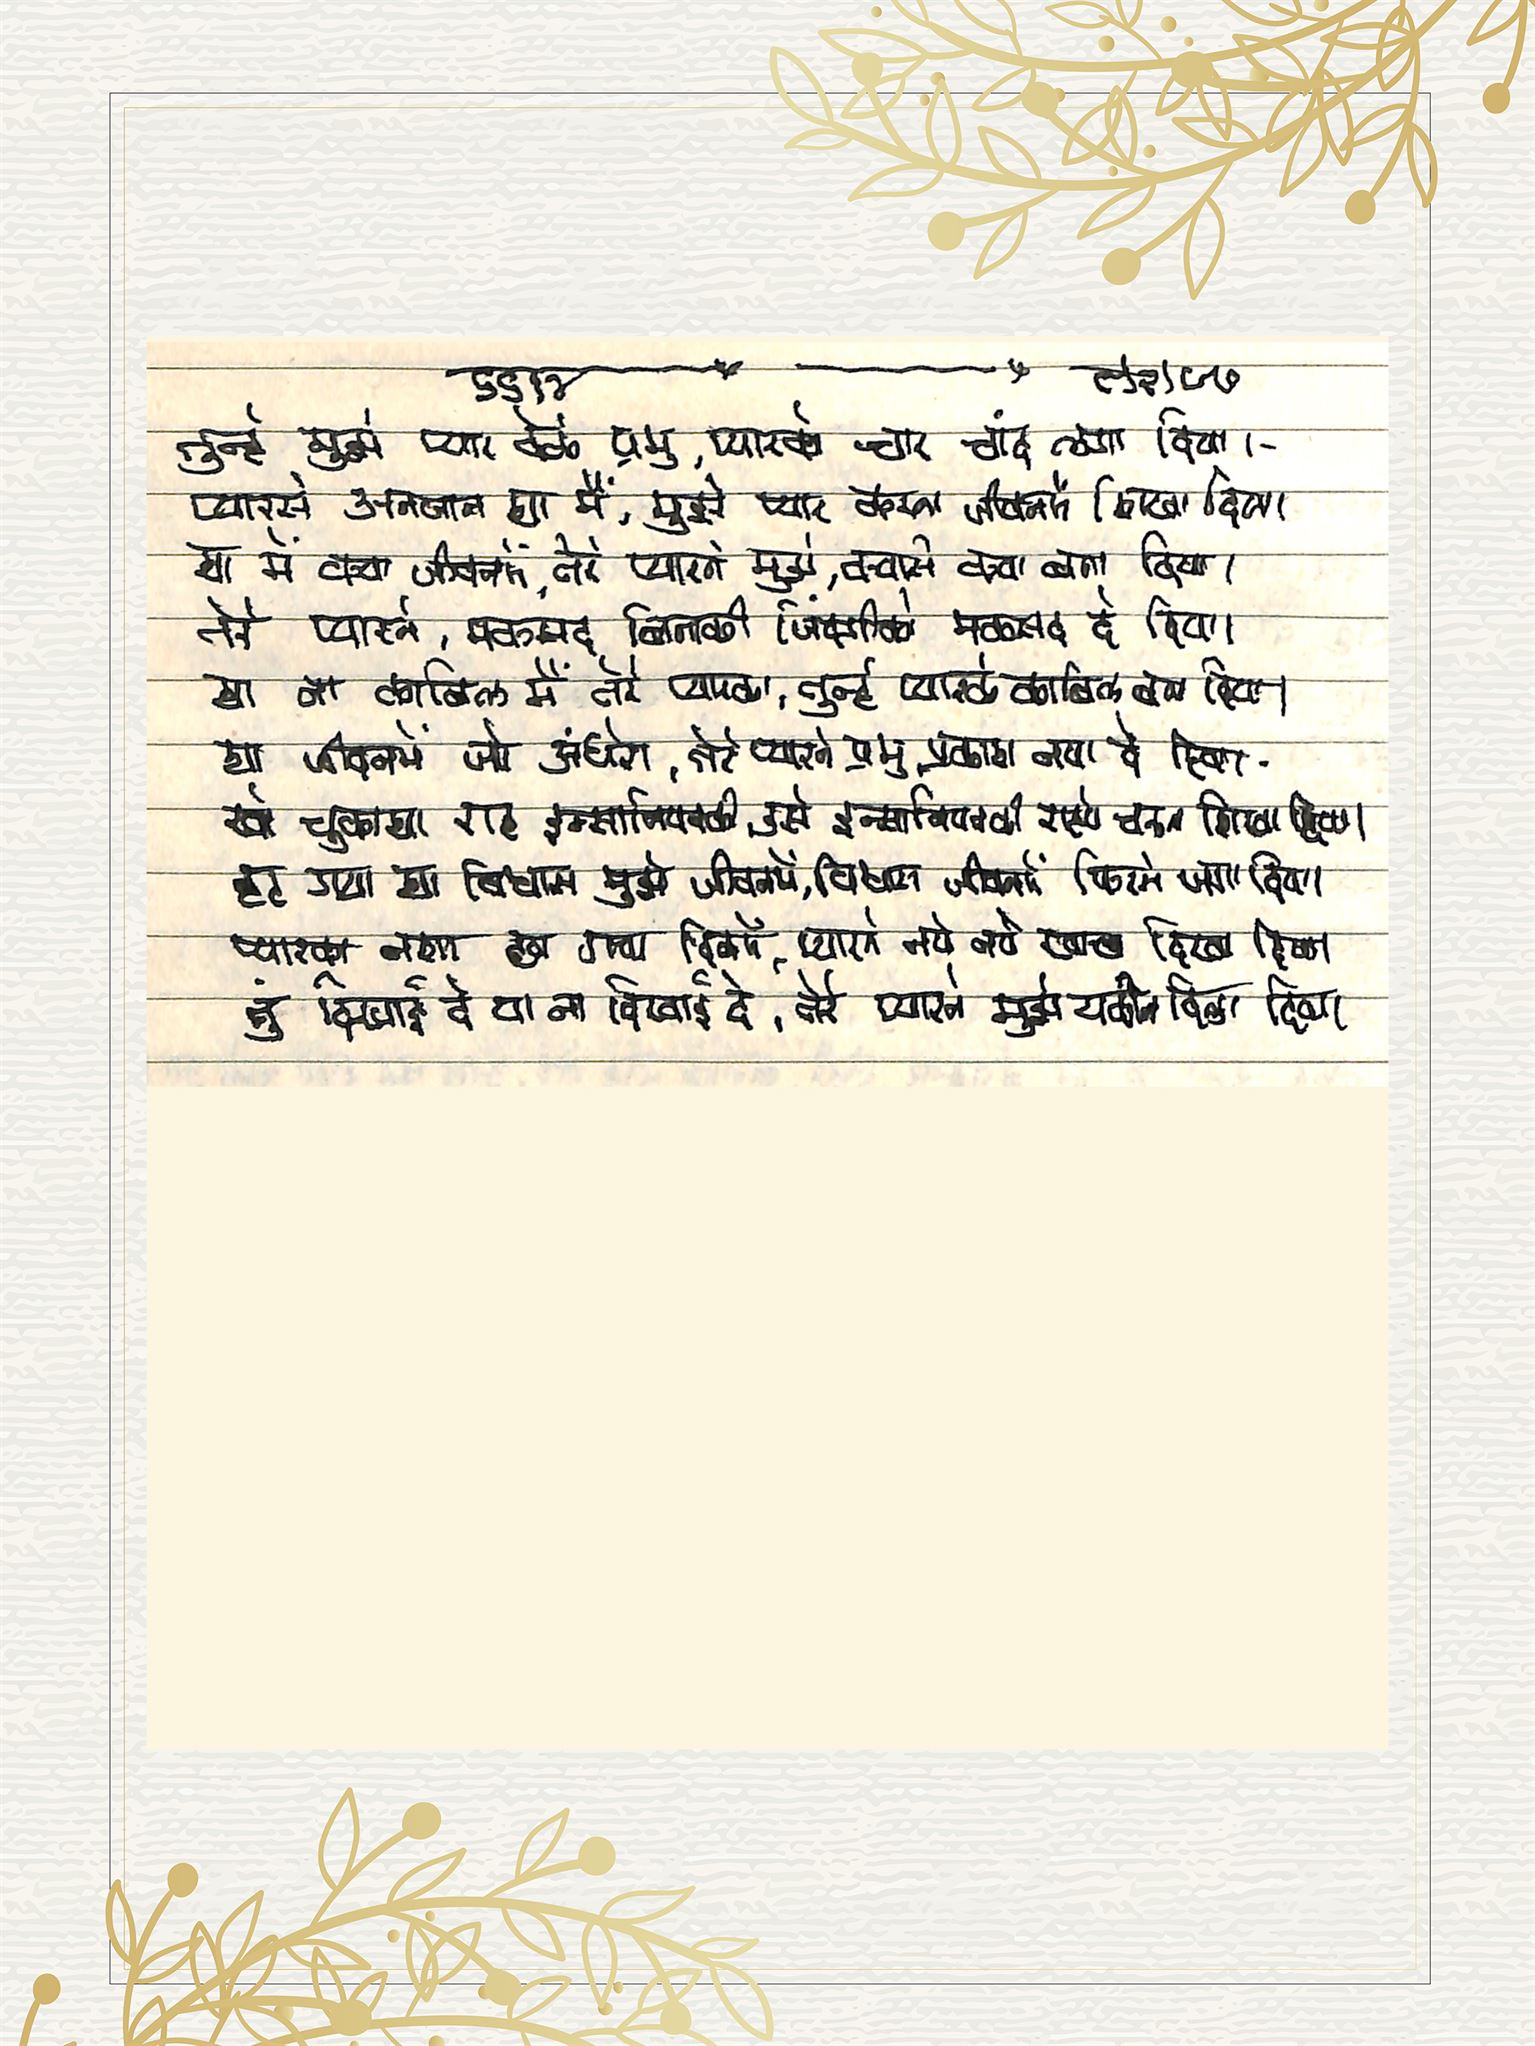 तुन्हे मुझे प्यार देके प्रभु, प्यारको चार चांद लगा दिया।-
प्यारसे अनजान था मैं, मुझे प्यार करना जीवनमें सिखा दिया।
था में क्या जीवनमें, तेरे प्यारने मुझे, क्यासे क्या बना दिया।
तेरे प्यारने, मकसद बिनकी जिंदगीको मकसद दे दिया।
था ना काबिल मैं तेरे प्यारका, तुन्हे प्यारके काबिल बना दिया।
था जीवनमें जो अंधेरा, तेरे प्यारने प्रभु, प्रकाश नया दे दिया.
खो चुकाथा राह इन्सानियतकी, उसे इन्सानियतकी राहपे चलना सिखा दिया।
टूट गया था विश्वास मुझे जीवनमें, विश्वास जीवनमें फिरसे जगा दिया।
प्यारका नशा छा गया दिलमें, प्यारने नये नये ख्वाब दिखा दिया।
तुं दिखाई दे या ना दिखाई दे, तेरे प्यारने मुझे यकीन दिला दिया।